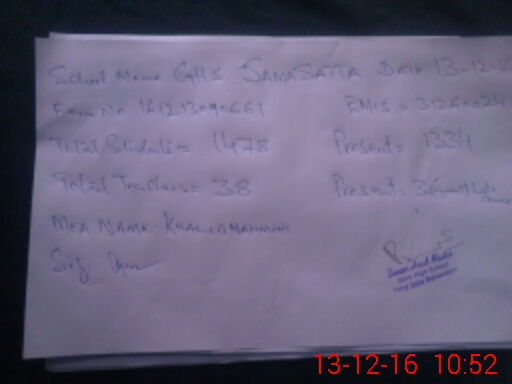 School Name GHS SAMASATTA DATE 13-12-16
Form No 161213090661 EMIS = 31260024
Total Students = 1478 Present = 1334
Total Teachers = 38 Present = 36
MEA NAME KHALID MAHMOOD
Sig
13-12-16 10:52